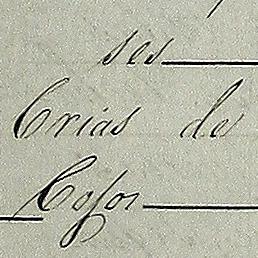 ses
Crias de
Cosos